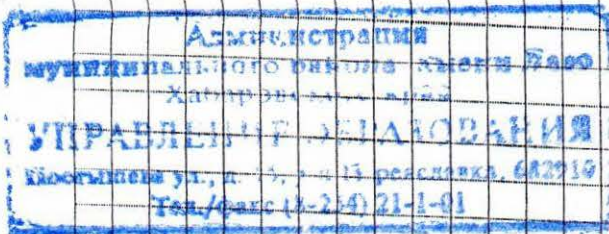 Администрация
муниципального района имени Лазо
Хабаровского края
УПРАВЛЕНИЕ ОБРАЗОВАНИЯ
Постышева ул., п. Переяславка, 682910
Тел./факс 21-1-01